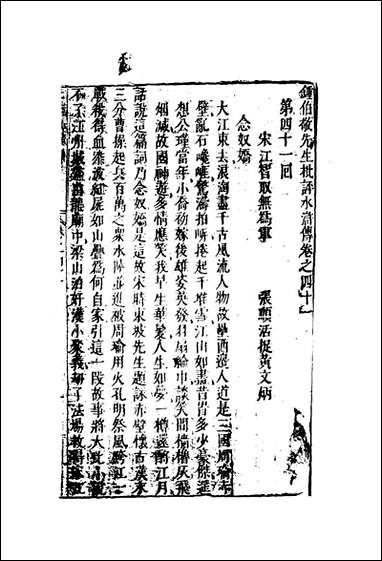 鍾伯敬先生批評水滸傳卷之四十一
第四十一回
宋江智取無為軍　張順活捉黃文炳
念奴嬌
大江東去浪淘盡千古風流人物故壘西邊人道是三國周瑜赤
壁亂石崩雲驚濤拍岸捲起千堆雪江山如畫一時多少豪傑遥
想公瑾當年小喬初嫁後雄姿英發羽扇綸巾談笑間檣櫓灰飛
烟滅故國神遊多情應笑我早生華髮人生如夢一樽還酹江月
話說這篇詞乃念奴嬌是這故宋時東坡先生題詠赤壁懷古漢末
三分曹操起兵百萬之衆水陸並進被周瑜用火孔明祭風跨江一
戰殺得血染波紅屍如山疊為何自家引這一段故事將大比小說
不了江州城
廟中梁山泊好漢小聚義刼了法場救得宋江